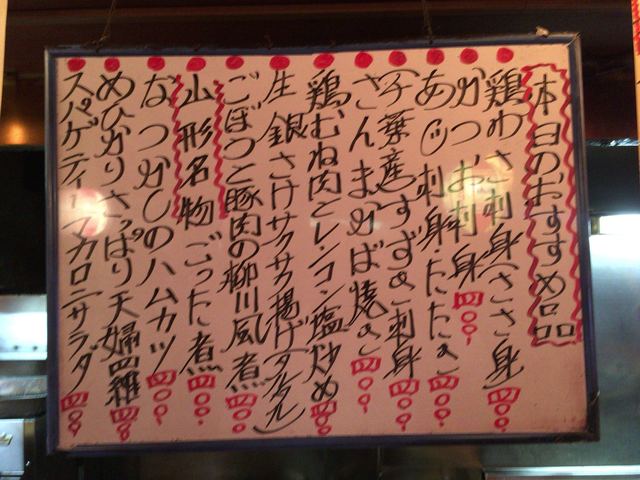 本日のおすすめ品
鶏わさ刺身(ささ身) 四〇〇.
かつお刺身 四〇〇.
あじ刺身・たたき 四〇〇.
(千葉産)すずき刺身 四〇〇.
さんまかば焼き 四〇〇.
鶏むね肉とレンコン塩炒め 四〇〇.
生銀さけサクサク揚げ(タルタル)
ごぼうと豚肉の柳川風煮 四〇〇.
山形名物ごった煮 四〇〇.
なつかしのハムカツ 四〇〇.
めひかりさっぱり天婦羅 四〇〇.
スパゲティーマカロニサラダ 四〇〇.